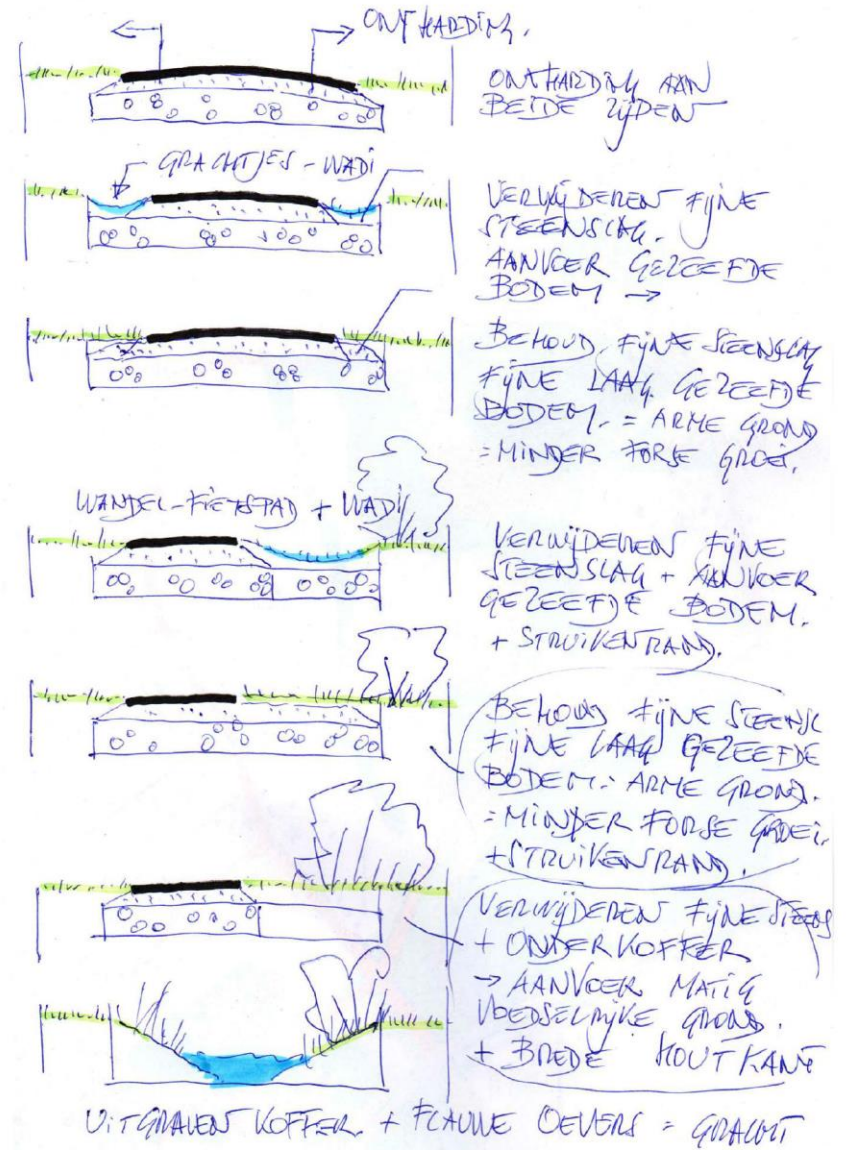 ONTHARDING.
ONTHARDING AAN
BEIDE ZIJDEN
GRACHTJES - WADI
VERWIJDEREN FIJNE
STEENSLAG.
AANVOER GEZEEFDE
BODEM →
BEHOUD FIJNE STEENSLAG
FIJNE LAAG GEZEEFDE
BODEM. = ARME GROND
= MINDER FORSE GROEI.
WANDEL-FIETSPAD + WADI
VERWIJDEREN FIJNE
STEENSLAG + AANVOER
GEZEEFDE BODEM.
+ STRUIKENRAND.
BEHOUD FIJNE STEENSL
FIJNE LAAG GEZEEFDE
BODEM = ARME GROND.
= MINDER FORSE GROEI.
+ STRUIKENRAND.
VERWIJDEREN FIJNE STEENS
+ ONDERKOFFER
→ AANVOER MATIG
VOEDSELRIJKE GROND.
+ BREDE HOUTKANT
UITGRAVEN KOFFER + FLAUWE OEVERS = GRACHT